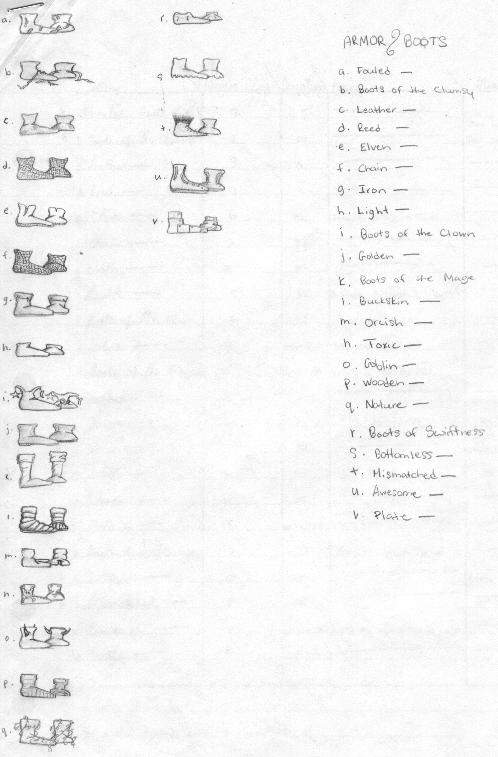 a.
b.
c.
d.
e.
f.
g.
h.
i.
j.
k.
l.
m.
n.
o.
p.
q.
r.
s
t.
u.
v.
ARMOR & BOOTS
a. Fouled —
b. Boots of the Clumsy
c. Leather —
d. Reed —
e. Elven —
f. Chain —
g. Iron —
h. Light —
i. Boots of the Clown
j. Golden —
k. Boots of the Mage
l. Buckskin —
m. Orcish —
n. Toxic —
o. Goblin —
p. Wooden —
q. Nature —
r. Boots of Swiftness
s. Bottomless —
t. Mismatched —
u. Awesome —
v. Plate —